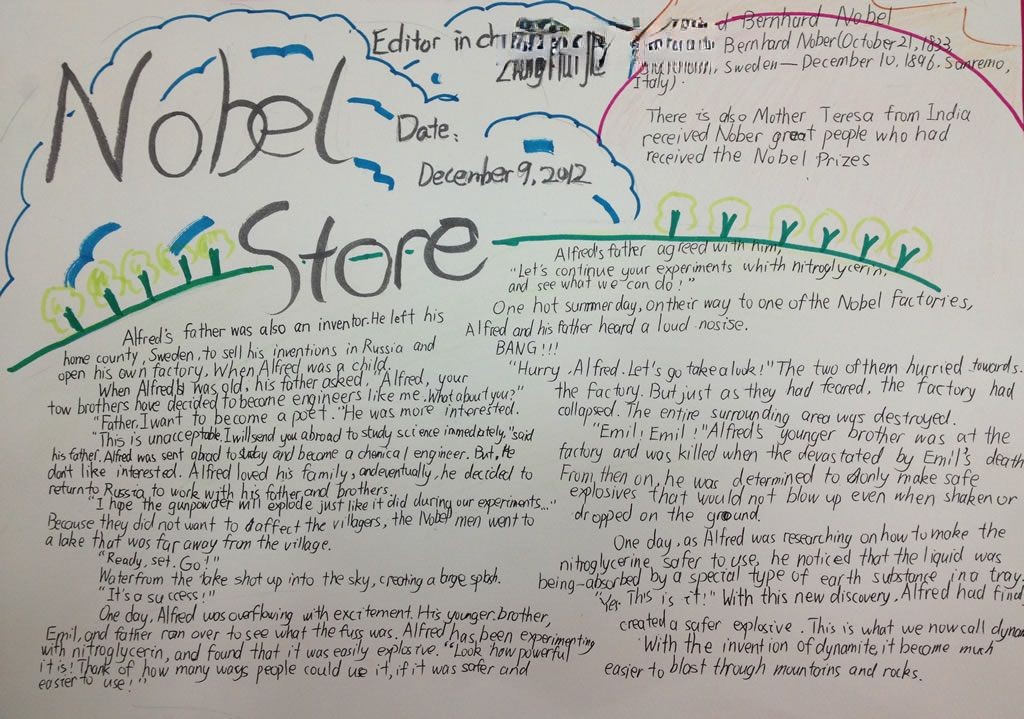 Nobel
Store
Editor in
Date:
December 9, 2012
Bernhard Nobel
Bernhard Nober(October 21, 1833,
Sweden — December 10, 1896. Sanremo,
Italy).
There is also Mother Teresa from India
received Nober great people who had
received the Nobel Prizes
Alfred's father was also an inventor. He left his
home county, Sweden, to sell his inventions in Russia and
open his own factory. When Alfred was a child.
When Alfred's was old, his father asked, "Alfred, your
tow brothers have decided to become engineers like me. What about you?"
"Father, I want to become a poet. "He was more interested.
"This is unacceptable, I will send you abroad to study science immediately," said
his father. Alfred was sent abrad to study and become a chenical engineer. But, He
don't like interested. Alfred loved his family, and eventually, he decided to
return to Russia, to work with his father and brothers.
"I hope the gunpowder will explode just like it did during our experiments..."
Because they did not want to affect the villagers, the Nobel men went to
a lake that was far away from the village.
"Ready, set. Go!"
Water from the lake shot up into the sky, creating a large splash.
"It's a success!"
One day, Alfred was overflowing with excitement. His younger brother,
Emil, and father ran over to see what the fuss was. Alfred has been experimenting
with nitroglycerin, and found that it was easily explosive. "Look how powerful
it is! Think of how many ways people could use it, if it was safer and
easier to use!"
Alfred's father agreed with him,
"Let's continue your experiments whith nitroglycerin,
and see what we can do!"
One hot summer day, on their way to one of the Nobel factories,
Alfred and his father heard a loud nosise.
BANG!!!
"Hurry, Alfred. Let's go take a look!" The two of them hurried towards.
the factory. But just as they had feared, the factory had
collapsed. The entire surrounding area was destroyed.
"Emil! Emil!" Alfred's younger brother was at the
factory and was killed when the devastated by Emil's death
From then on, he was determined to only make safe
explosives that would not blow up even when shaken or
dropped on the ground.
One day, as Alfred was researching on how to make the
nitroglycerine safer to use, he noticed that the liquid was
being-absorbed by a special type of earth substance in a tray.
"Yer. This is it!" With this new discovery, Alfred had find
created a safer explosive. This is what we now call dynam
With the invention of dynamite, it become much
easier to blast through mountains and rocks.